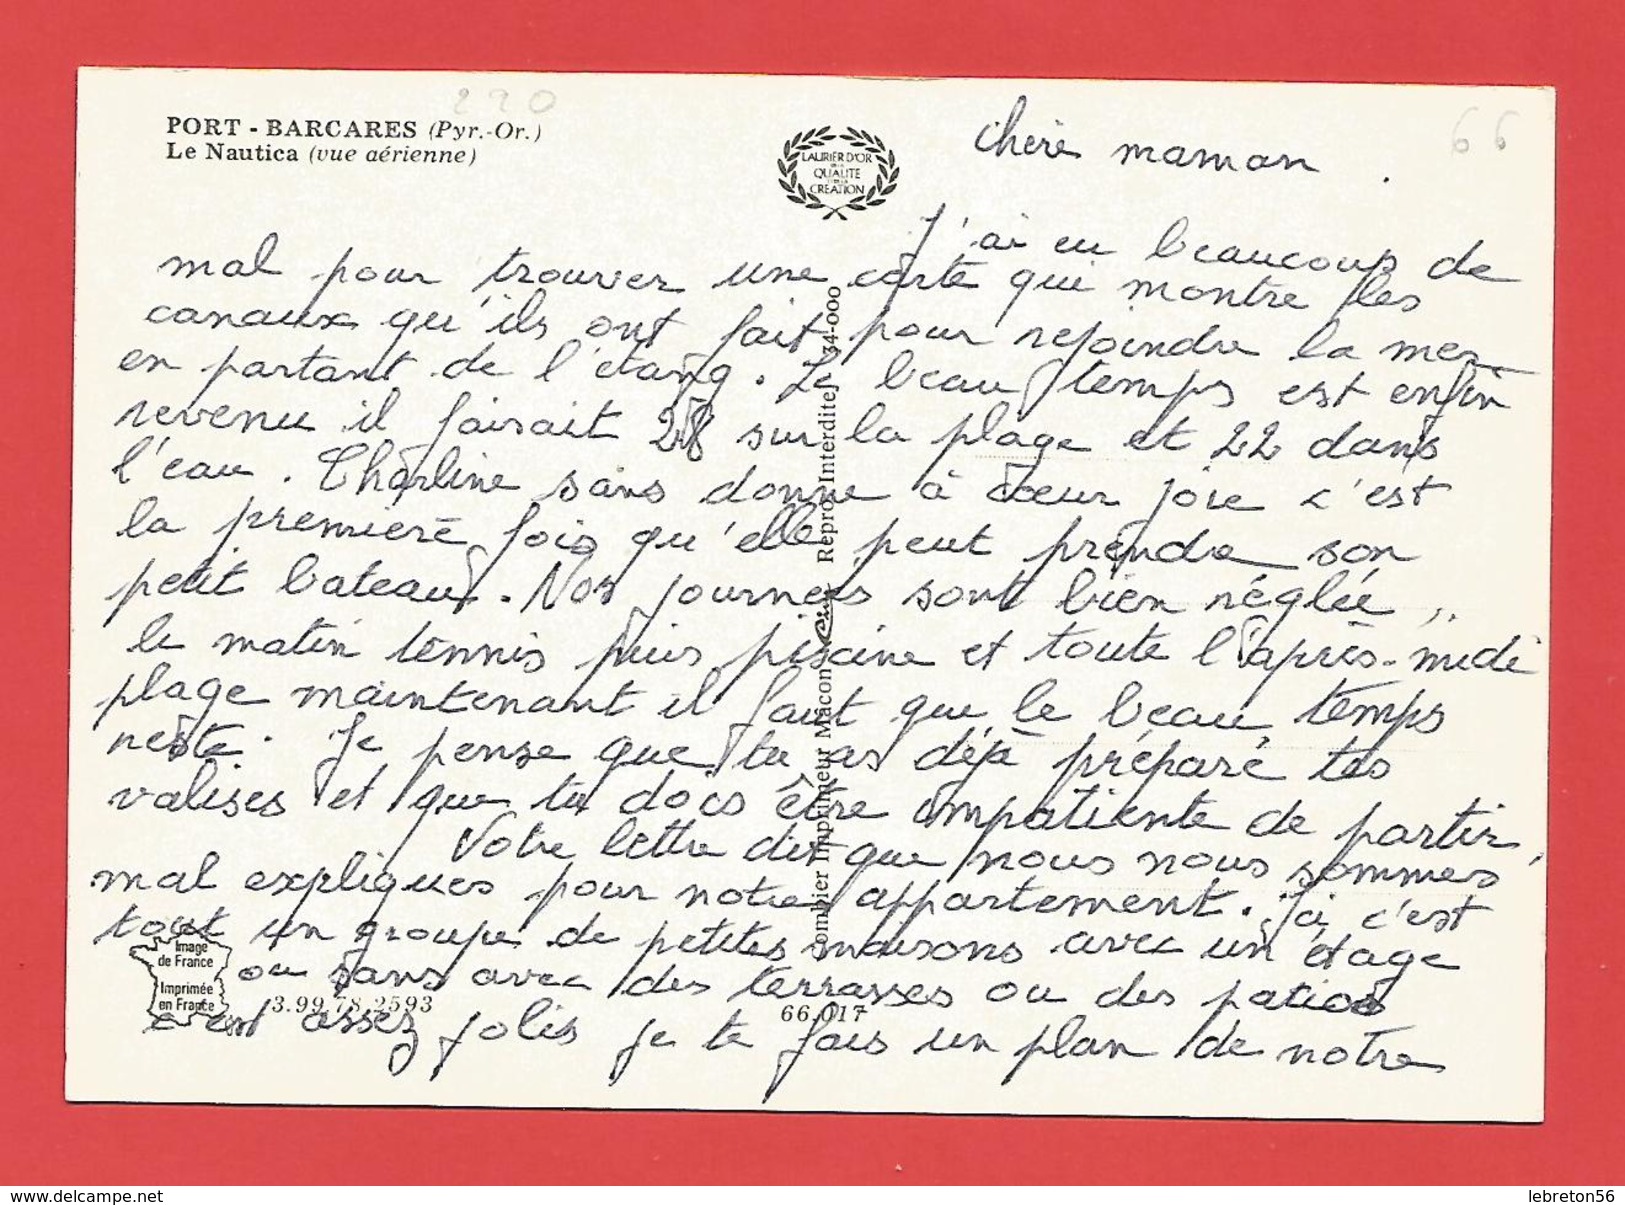 220
66
PORT - BARCARES (Pyr.-Or.)
Le Nautica (vue aérienne)
LAURIER D'OR
DE LA
QUALITE
CREATION
Chère maman.
J'ai eu beaucoup de
mal pour trouver une carte qui montre les
canaux qu'ils ont fait pour rejoindre la mer
en partant de l'étang. Le beau temps est enfin
revenu il faisait 28 sur la plage et 22 dans
l'eau. Charline sans donne à cœur joie c'est
la première fois qu'elle peut prendre son
petit bateau. Nos journées sont bien réglée,
le matin tennis puis piscine et toute l'après-midi
plage maintenant il faut que le beau temps
reste. Je pense que tu as déjà préparé tes
valises et que tu dois être impatiente de partir,
Votre lettre dit que nous nous sommes
mal expliques pour notre appartement. Ici c'est
tout un groupe de petites maisons avec un étage
ou sans avec des terrasses ou des patios
c'est assez jolis je te fais un plan de notre
Combier Imprimeur Macon Cim Repro. Interdite 34-000
Image
de France
Imprimée
en France
3.99.78.2593
66.017
lebreton56
www.delcampe.net